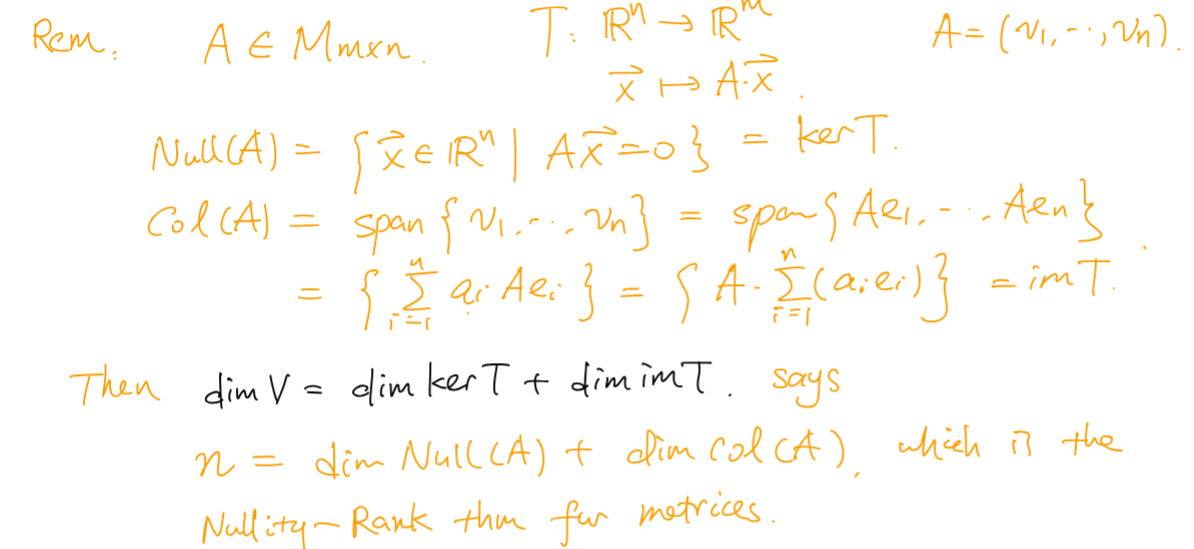 Rem. A ∈ Mm×n. T: ℝⁿ → ℝᵐ A = (v₁, ..., vₙ).
x⃗ ↦ A·x⃗.
Null(A) = { x⃗ ∈ ℝⁿ | Ax⃗ = 0 } = ker T.
Col(A) = span { v₁, ..., vₙ } = span { Ae₁, ..., Aeₙ }.
= { ∑ᵢ₌₁ⁿ aᵢ Aeᵢ } = { A · ∑ᵢ₌₁ⁿ (aᵢeᵢ) } = im T.
Then dim V = dim ker T + dim im T. says
n = dim Null(A) + dim Col(A), which is the
Nullity-Rank thm for matrices.